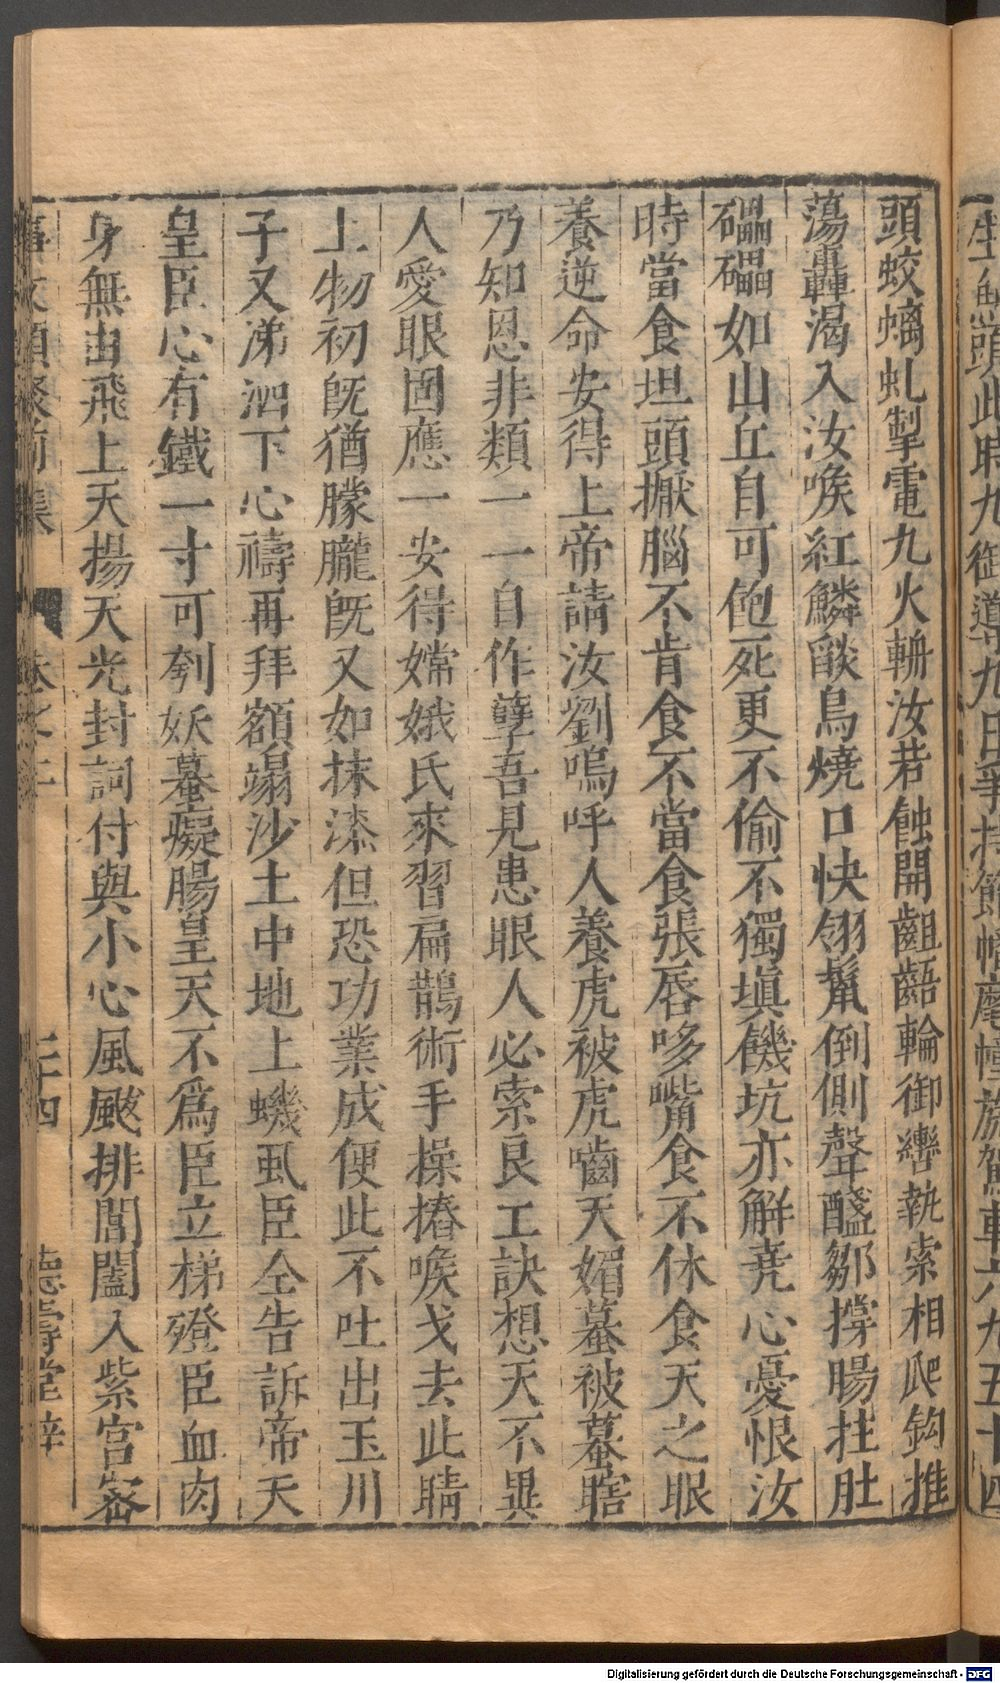 生魚頭此時九御導九日爭持節幡麾幢旒駕車六九五十四
頭蛟螭虬掣電九火輧汝若蝕開齟齬輪御轡執索相爬鈎推
蕩轟渴入汝喉紅鱗燄鳥燒口快翎鬣倒側聲醯鄒撑腸拄肚
礧礧如山丘自可飽死更不偷不獨塡饑坑亦解堯心憂恨汝
時當食坦頭撅腦不肯食不當食張唇哆嘴食不休食天之眼
養逆命安得上帝請汝劉嗚呼人養虎被虎嚙天媚蟇被蟇瞎
乃知恩非類一一自作孽吾見患眼人必索良工訣想天不異
人愛眼固應一安得嫦娥氏來習扁鵲術手操摏喉戈去此睛
上物初旣猶朦朧旣又如抹漆但恐功業成便此不吐出玉川
子又涕泗下心禱再拜額塌沙土中地上蟣虱臣仝告訴帝天
皇臣心有鐵一寸可刳妖蟇癡腸皇天不爲臣立梯磴臣血肉
身無由飛上天揚天光封詞付與小心風颰排閶闔入紫宮密
事文類聚前集 卷之二 二十四 德壽堂梓
Digitalisierung gefördert durch die Deutsche Forschungsgemeinschaft - DFG